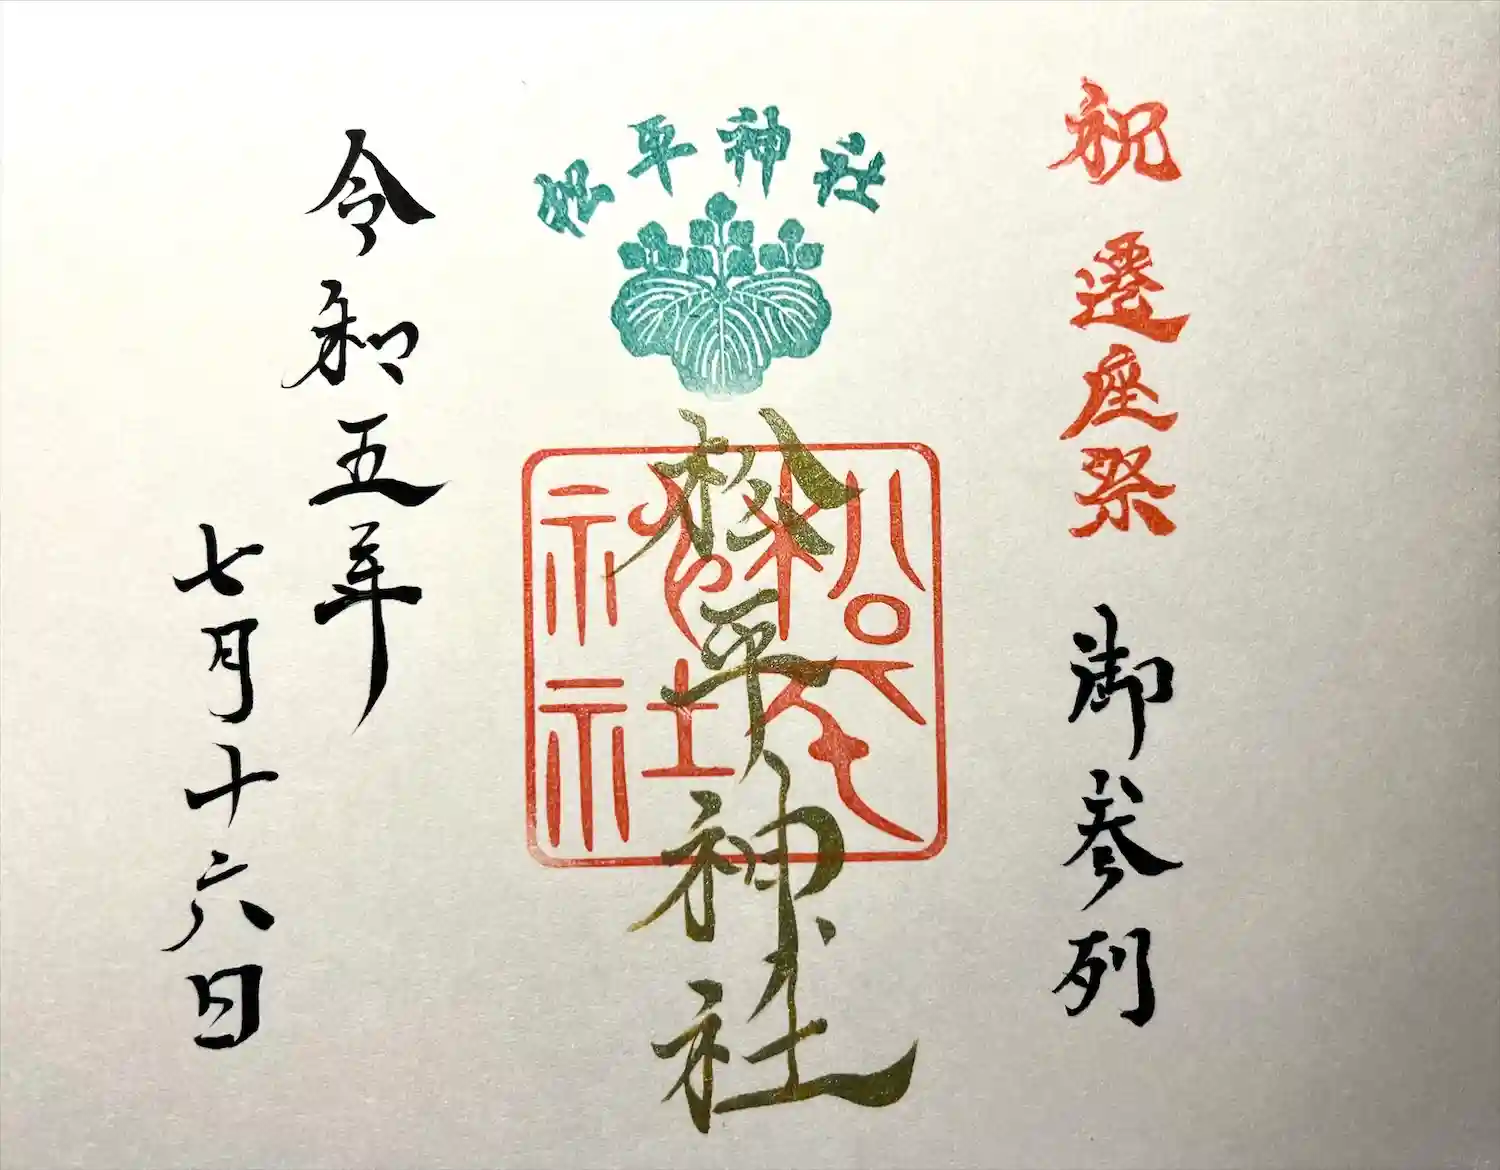 祝 遷座祭 御参列
松平神社
松平神社
松平神社
令和五年
七月十六日